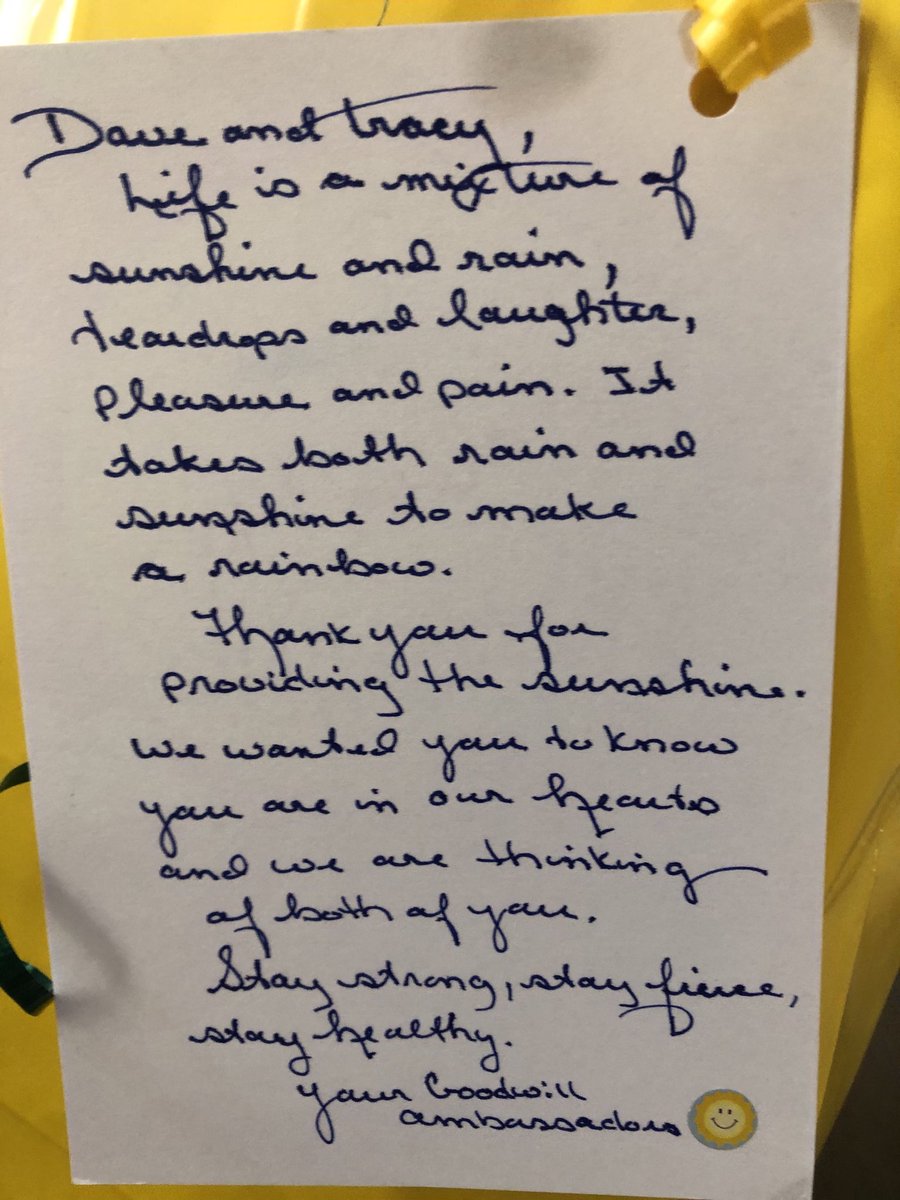 Dave and Tracy,
Life is a mixture of
sunshine and rain,
teardrops and laughter,
pleasure and pain. It
takes both rain and
sunshine to make
a rainbow.
Thank you for
providing the sunshine.
We wanted you to know
you are in our hearts
and we are thinking
of both of you.
Stay strong, stay fierce,
stay healthy.
Your Goodwill
Ambassadors